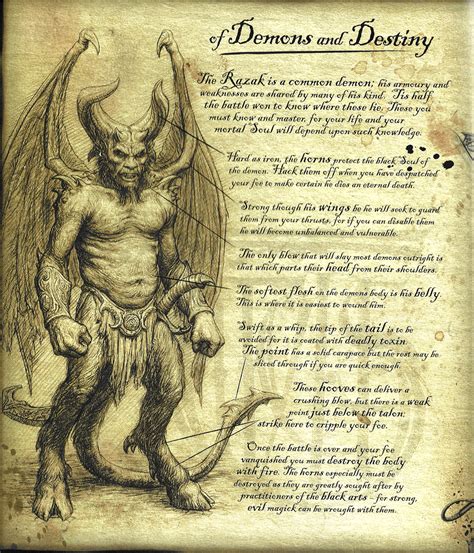 of Demons and Destiny
The Razak is a common demon; his armoury and
weaknesses are shared by many of his kind. 'Tis half
the battle won to know where these lie. These you
must know and master, for your life and your
mortal Soul will depend upon such knowledge.
Hard as iron, the horns protect the black Soul of
the demon. Hack them off when you have despatched
your foe to make certain he dies an eternal death.
Strong though his wings be he will seek to guard
them from your thrusts, for if you can disable them
he will become unbalanced and vulnerable.
The only blow that will slay most demons outright is
that which parts their head from their shoulders.
The softest flesh on the demons body is his belly.
This is where it is easiest to wound him.
Swift as a whip, the tip of the tail is to be
avoided for it is coated with deadly toxin.
The point has a solid carapace but the rest may be
sliced through if you are quick enough.
These hooves can deliver a
crushing blow, but there is a weak
point just below the talon;
strike here to cripple your foe.
Once the battle is over and your foe
vanquished you must destroy the body
with fire. The horns especially must be
destroyed as they are greatly sought after by
practitioners of the black arts - for strong,
evil magick can be wrought with them.